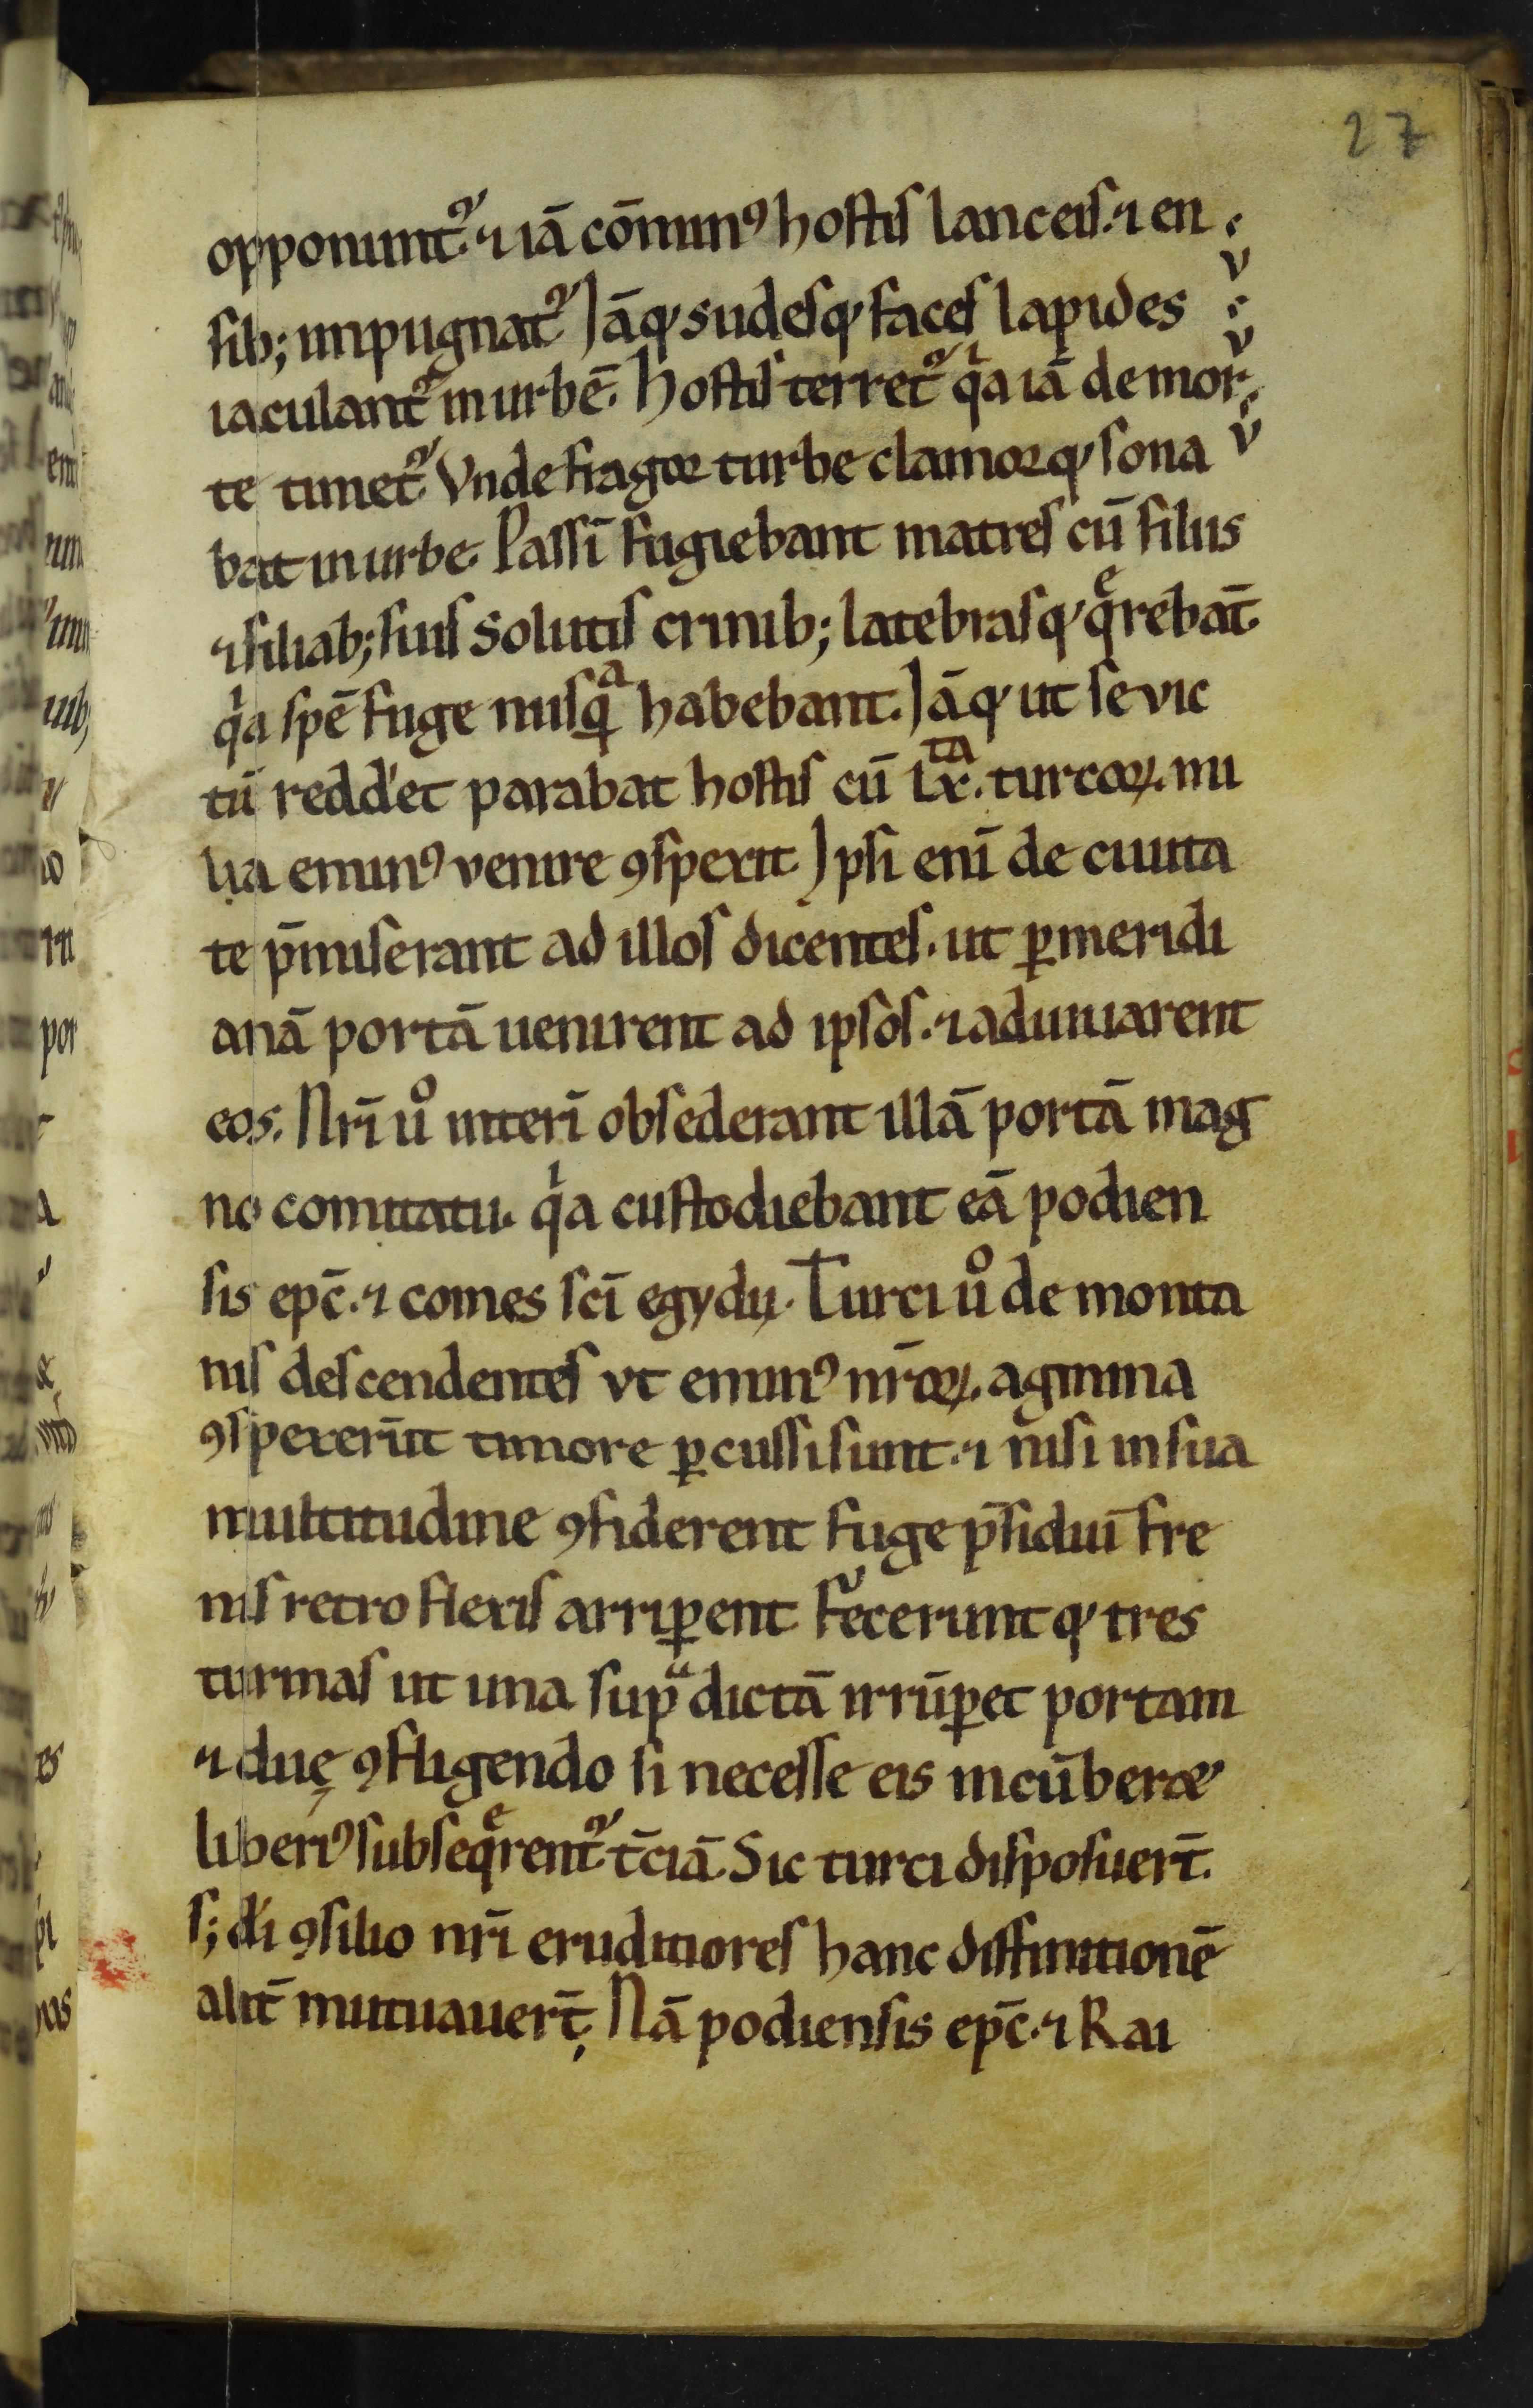 27
opponunt᷑. ⁊ iā cōminꝰ hostis lanceis. ⁊ en
sib; impugnat᷑. Iāq; sudesq; faces lapides
iaculant᷑ in urbē. Hostis terret᷑ qͥa iā de mor
te timet᷑. Vnde fragor turbe clamorq; sona
bat in urbe. Passī fugiebant matres cū filiis
⁊ filiab; suis solutis crinib; latebrasq; qͤrebāt.
qͥa spē fuge nusqͣ habebant. Iāq; ut se vic
tū redd'et parabat hostis cū Lxͭͣ. turcoꝝ. mi
lia eminꝰ venire ꝯspexit. Ipsi enī de ciuita
te p̄miserant ad illos dicentes. ut ꝑ meridi
anā portā uenirent ad ipsos. ⁊ adiuuarent
eos. Nr̄i uͦ interī obsederant illā portā mag
no comitatu. qͥa custodiebant eā podien
sis ep̄c. ⁊ comes sc̄i egydij. Turci uͦ de monta
nis descendentes vt eminꝰ nr̄oꝝ. agmina
ꝯspexerūt timore ꝑcussi sunt. ⁊ nisi in sua
multitudine ꝯfiderent fuge p̄sidiuī fre
nis retro flexis arriꝑent. Fecerunt q; tres
turmas ut una supͣdictā irrūꝑet portam
⁊ duę ꝯfligendo si necesse eis incūberet
liberiꝰ subseqͤrent᷑ t̄ciā. Sic turci disposuer̄t.
s; d'i ꝯsilio nr̄i eruditiores hanc diffinitionē
alit̄ mutuauer̄t. Nā podiensis ep̄c. ⁊ Rai